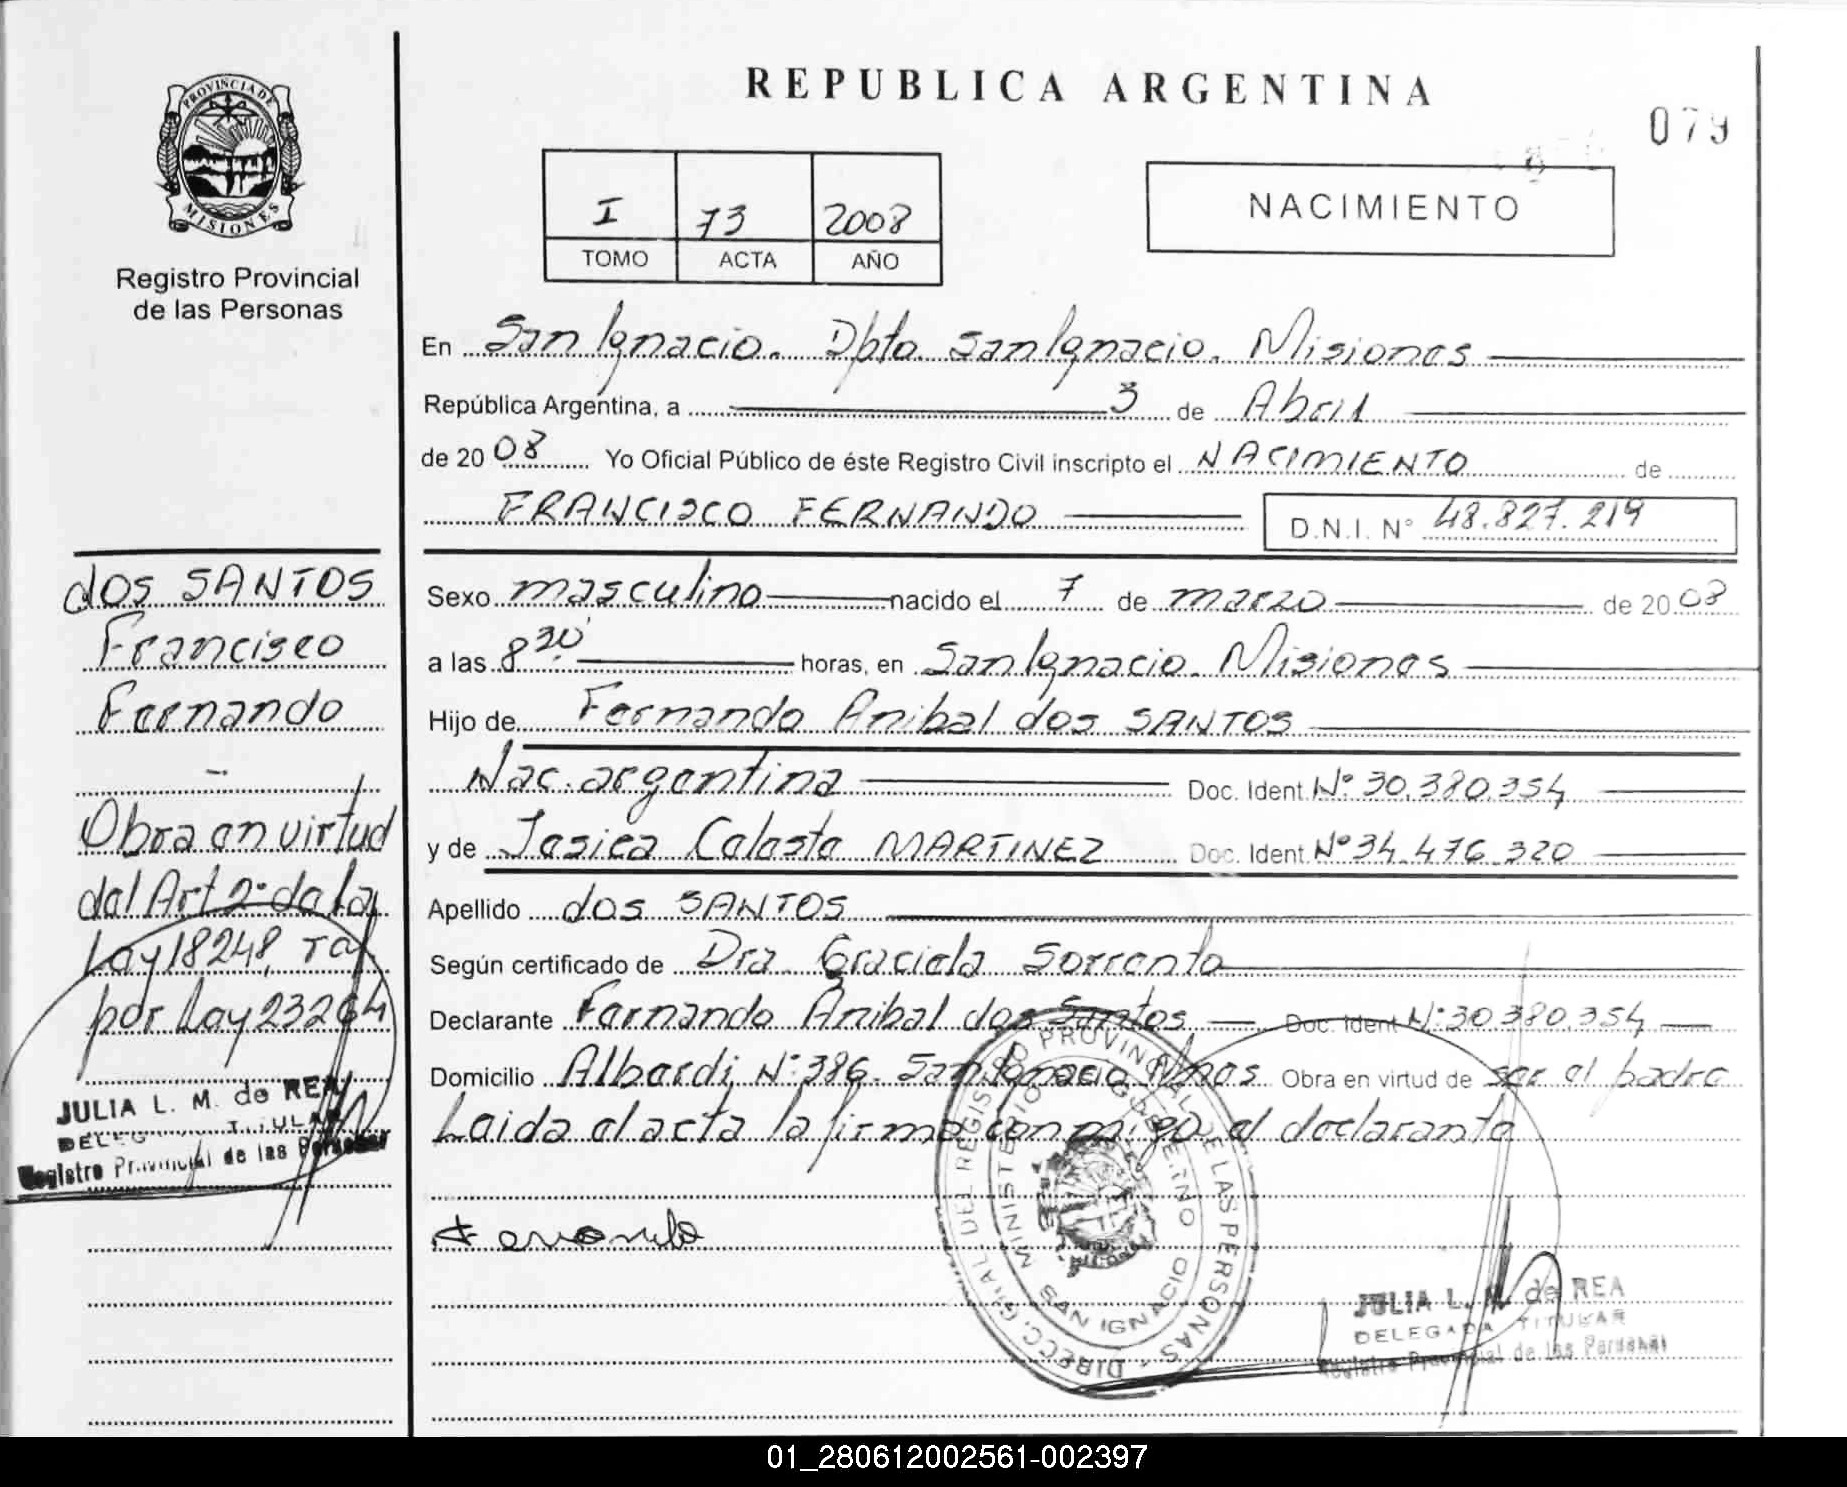 REPUBLICA ARGENTINA
079
PROVINCIA DE
MISIONES
Registro Provincial
de las Personas
I 73 2008
TOMO ACTA AÑO
NACIMIENTO
En San Ignacio. Dpto. San Ignacio. Misiones
República Argentina, a 3 de Abril
de 20 08 Yo Oficial Público de éste Registro Civil inscripto el NACIMIENTO de
FRANCISCO FERNANDO D.N.I. N° 48.827.219
Sexo masculino nacido el 7 de marzo de 20 08
a las 8 30' horas, en San Ignacio. Misiones
Hijo de Fernando Anibal dos SANTOS
Nac. argentina Doc. Ident. N° 30.380.354
y de Jesica Celeste MARTINEZ Doc. Ident. N° 34.476.320
Apellido dos SANTOS
Según certificado de Dra. Graciela Sorrento
Declarante Fernando Anibal dos Santos Doc. Ident. N° 30.380.354
Domicilio Alberdi N° 386. San Ignacio Mnes. Obra en virtud de ser el padre
Leida el acta la firma conmigo el declarante
Fernando
dos SANTOS
Francisco
Fernando
Obra en virtud
del Art 2° de la
Ley 18248,
por Ley 23264
JULIA L. M. de REA
DELEGADA TITULAR
Registro Provincial de las Personas
DIRECC. GRAL DEL REGISTRO PROVINCIAL DE LAS PERSONAS
MINISTERIO GOBIERNO
SAN IGNACIO
JULIA L. M. de REA
DELEGADA TITULAR
Registro Provincial de las Personas
01_280612002561-002397